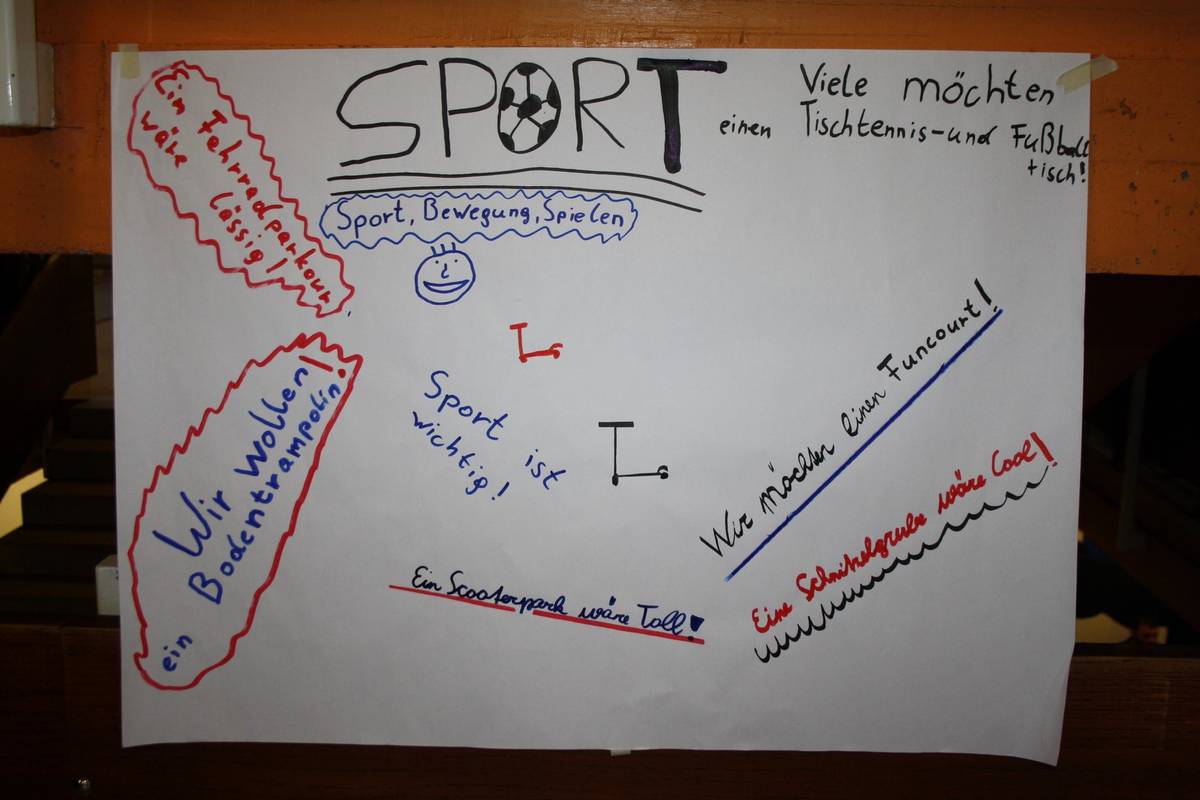 SPORT
Viele möchten
einen Tischtennis-und Fußball
tisch!
Sport, Bewegung, Spielen
Ein Fehrradparkour
wäre lässig!
Wir wollen!
ein Bodentrampolin
Sport ist
wichtig!
Wir möchten einen Funcourt!
Eine Schnitzelgrube wäre Cool!
Ein Scooterpark wäre Toll!